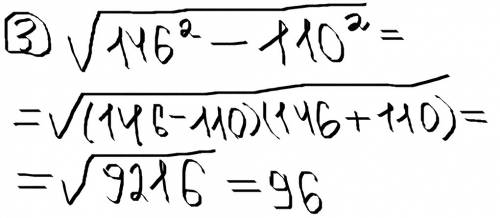 ③ √(146² − 110²) =
= √((146−110)(146+110)) =
= √9216 = 96